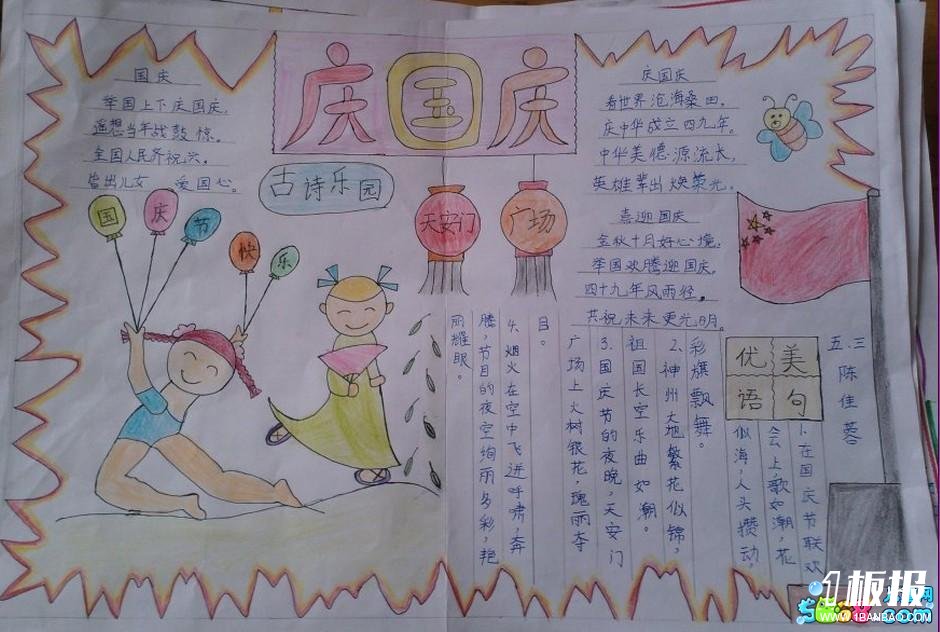 庆国庆
国庆
举国上下庆国庆，
遥想当年战鼓惊。
全国人民齐祝兴，
皆出儿女 爱国心。
古诗乐园
国庆节快乐
天安门
广场
庆国庆
看世界沧海桑田，
庆中华成立四九年。
中华美德源流长，
英雄辈出焕荣光。
喜迎国庆
金秋十月好心境，
举国欢腾迎国庆。
四十九年风雨经，
共祝未来更光明。
五.三
陈佳蓉
优美语句
1、在国庆节联欢
会上，歌如潮，花
似海，人头攒动，
彩旗飘舞。
2、神州大地繁花似锦，
祖国长空乐曲如潮。
3、国庆节的夜晚，天安门
广场上火树银花，瑰丽夺
目。
4、烟火在空中飞进呼啸，奔
腾，节目的夜空绚丽多彩，艳
丽耀眼。
1板报
WWW.1BANBAO.COM